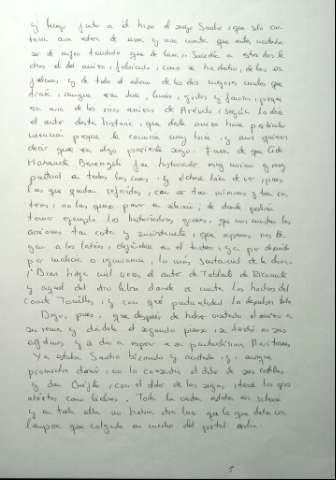 y luego junto a él hizo el suyo Sancho, que sólo con
tenía una estera de enea y una manta, que antes mostraba
ser de anjeo tundido que de lana. Sucedía a estos dos le
chos el del arriero, fabricado, como se ha dicho, de las en
jalmas y de todo el adorno de los dos mejores mulos que
traía, aunque eran doce, lucios, gordos y famosos, porque
era uno de los ricos arrieros de Arévalo, según lo dice
el autor desta historia, que deste arriero hace particular
mención porque le conocía muy bien, y aun quieren
decir que era algo pariente suyo. Fuera de que Cide
Mahamate Benengeli fue historiador muy curioso y muy
puntual en todas las cosas, y échase bien de ver, pues
las que quedan referidas, con ser tan mínimas y tan ra
teras, no las quiso pasar en silencio; de donde podrán
tomar ejemplo los historiadores graves, que nos cuentan las
acciones tan corta y sucintamente, que apenas nos lle
gan a los labios, dejándose en el tintero, ya por descuido,
por malicia o ignorancia, lo más sustancial de la obra.
¡Bien haya mil veces el autor de Tablante de Ricamonte
y aquel del otro libro donde se cuenta los hechos del
Conde Tomillas, y con qué puntualidad lo describen todo!
Digo, pues, que después de haber visitado el arriero a
su recua y dádole el segundo pienso, se tendió en sus
enjalmas y se dio a esperar a su puntualísima Maritornes.
Ya estaba Sancho bizmado y acostado, y, aunque
procuraba dormir, no lo consentía el dolor de sus costillas;
y don Quijote, con el dolor de las suyas, tenía los ojos
abiertos como liebre. Toda la venta estaba en silencio,
y en toda ella no había otra luz que la que daba una
lámpara que colgada en medio del portal ardía.
5